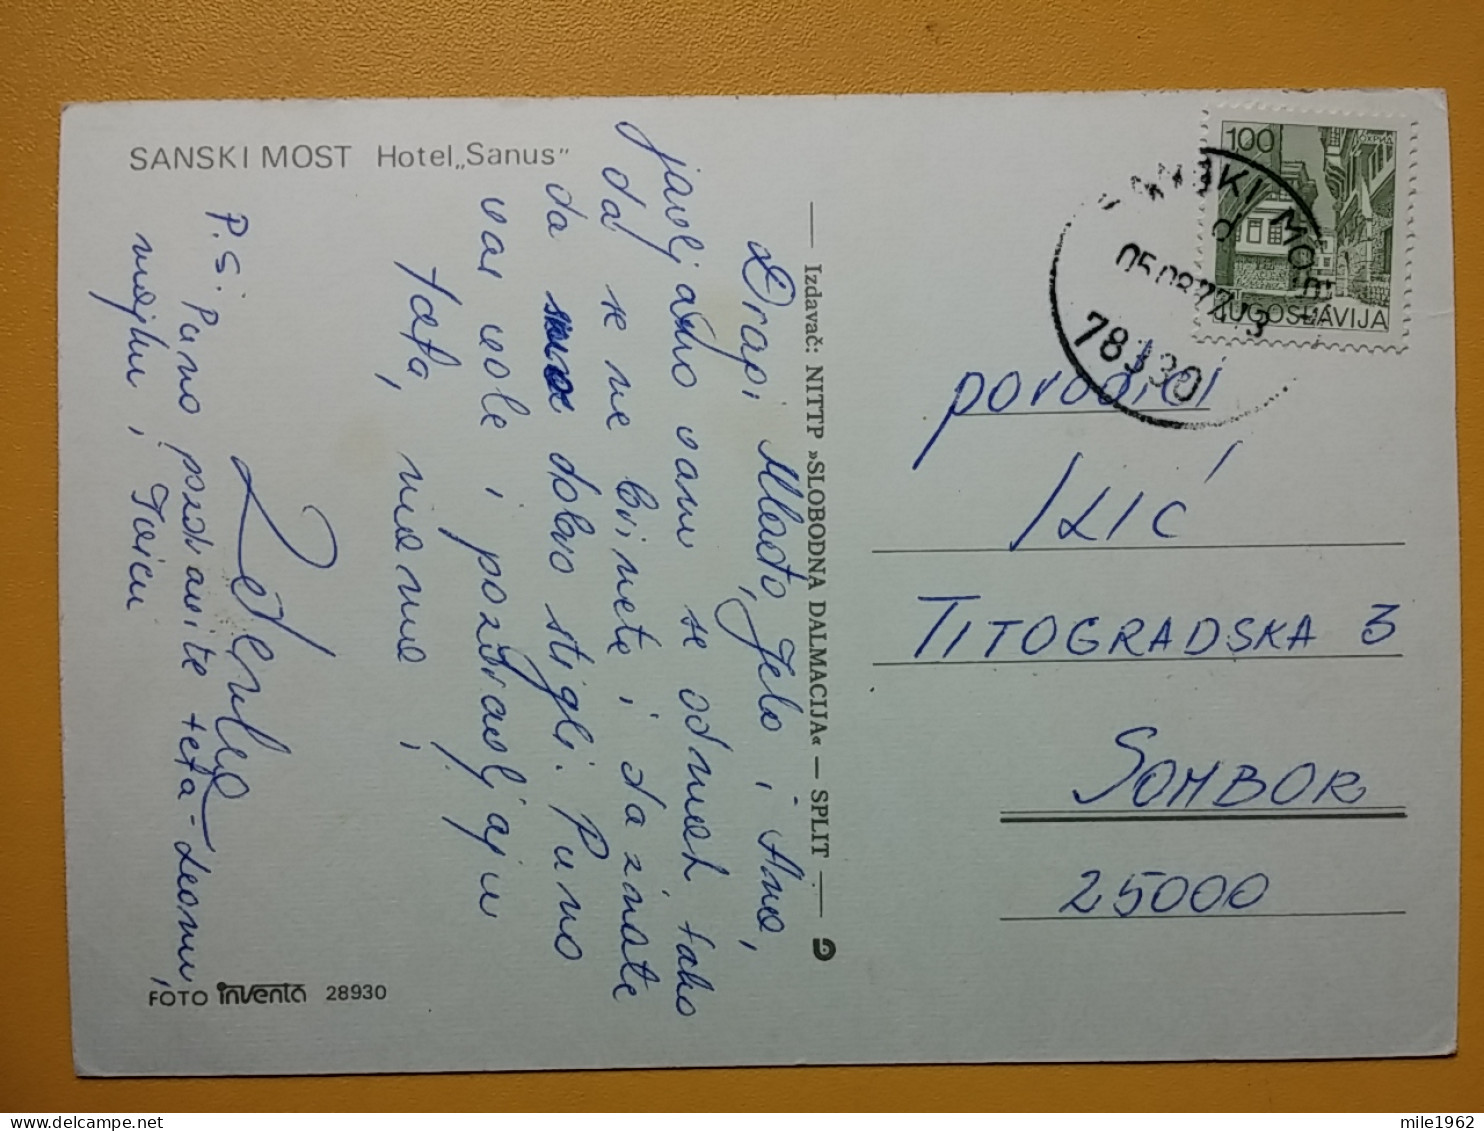 SANSKI MOST Hotel „Sanus"
Dragi Mlado, Jelo i Ano,
javljamo vam se odmah tako
da se ne brinete i da znate
da smo dobro stigli. Puno
vas vole i pozdravljaju
tata, mama i
P.S. Puno pozdravite teta-Leonu,
majku i Ivicu
FOTO inventa 28930
Izdavač: NITTP »SLOBODNA DALMACIJA« — SPLIT
100
ОХРИД
JUGOSLAVIJA
SANSKI MOST
d
78330
porodici
ILIĆ
TITOGRADSKA 3
SOMBOR
25000
mile1962